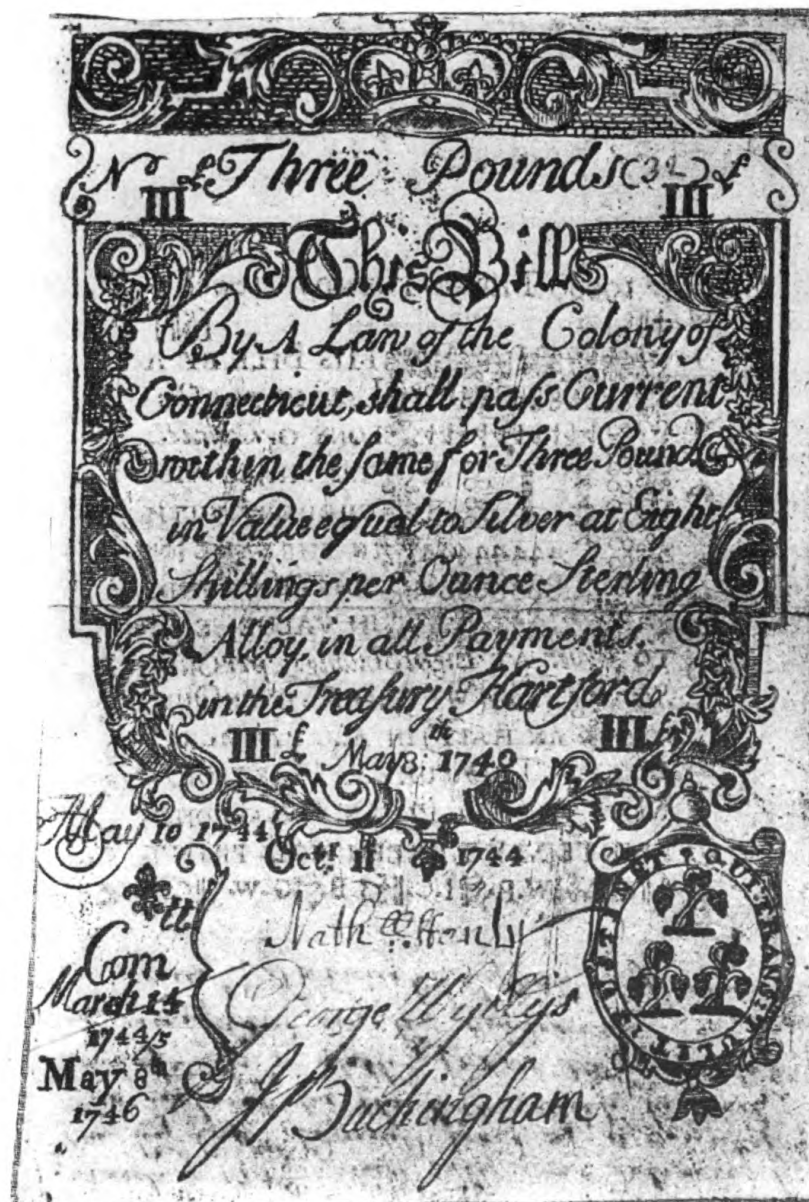 No £ Three Pounds (3L) £
III III
This Bill
By A Law of the Colony of
Connecticut, shall paſs Current
within the ſame for Three Pounds
in Value equal to Silver at Eight
Shillings per Ounce Sterling
Alloy, in all Payments,
in the Treaſury Hartford
III £ May 8th 1740 III £
May 10 1744
Octr 11 1744
Com tt
March 14
1744/5
May 8th
1746
Nath Stanly
George Wyllys
J Buckingham
SUSTINET QUI TRANSTULIT